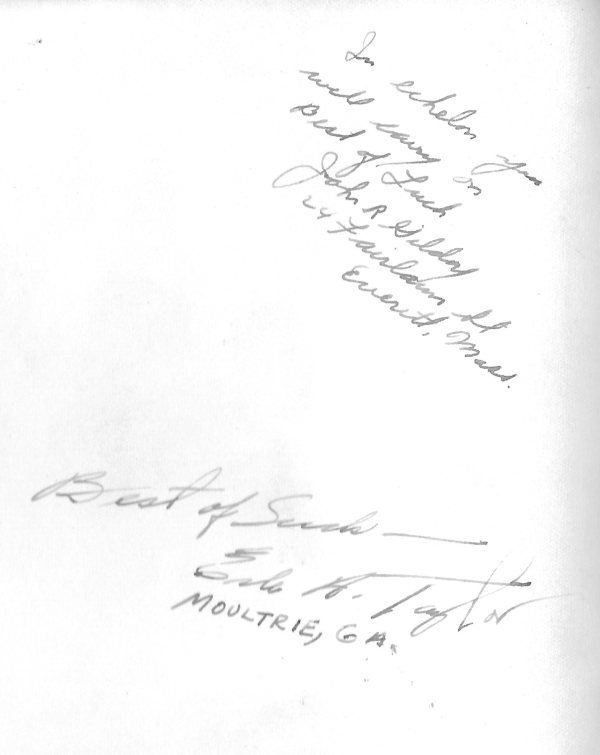 In echelon you
will carry on
Best of Luck
John R Gildoy
24 Fairlawn St
Everett, Mass.
Best of Luck —
K. Taylor
MOULTRIE, GA.